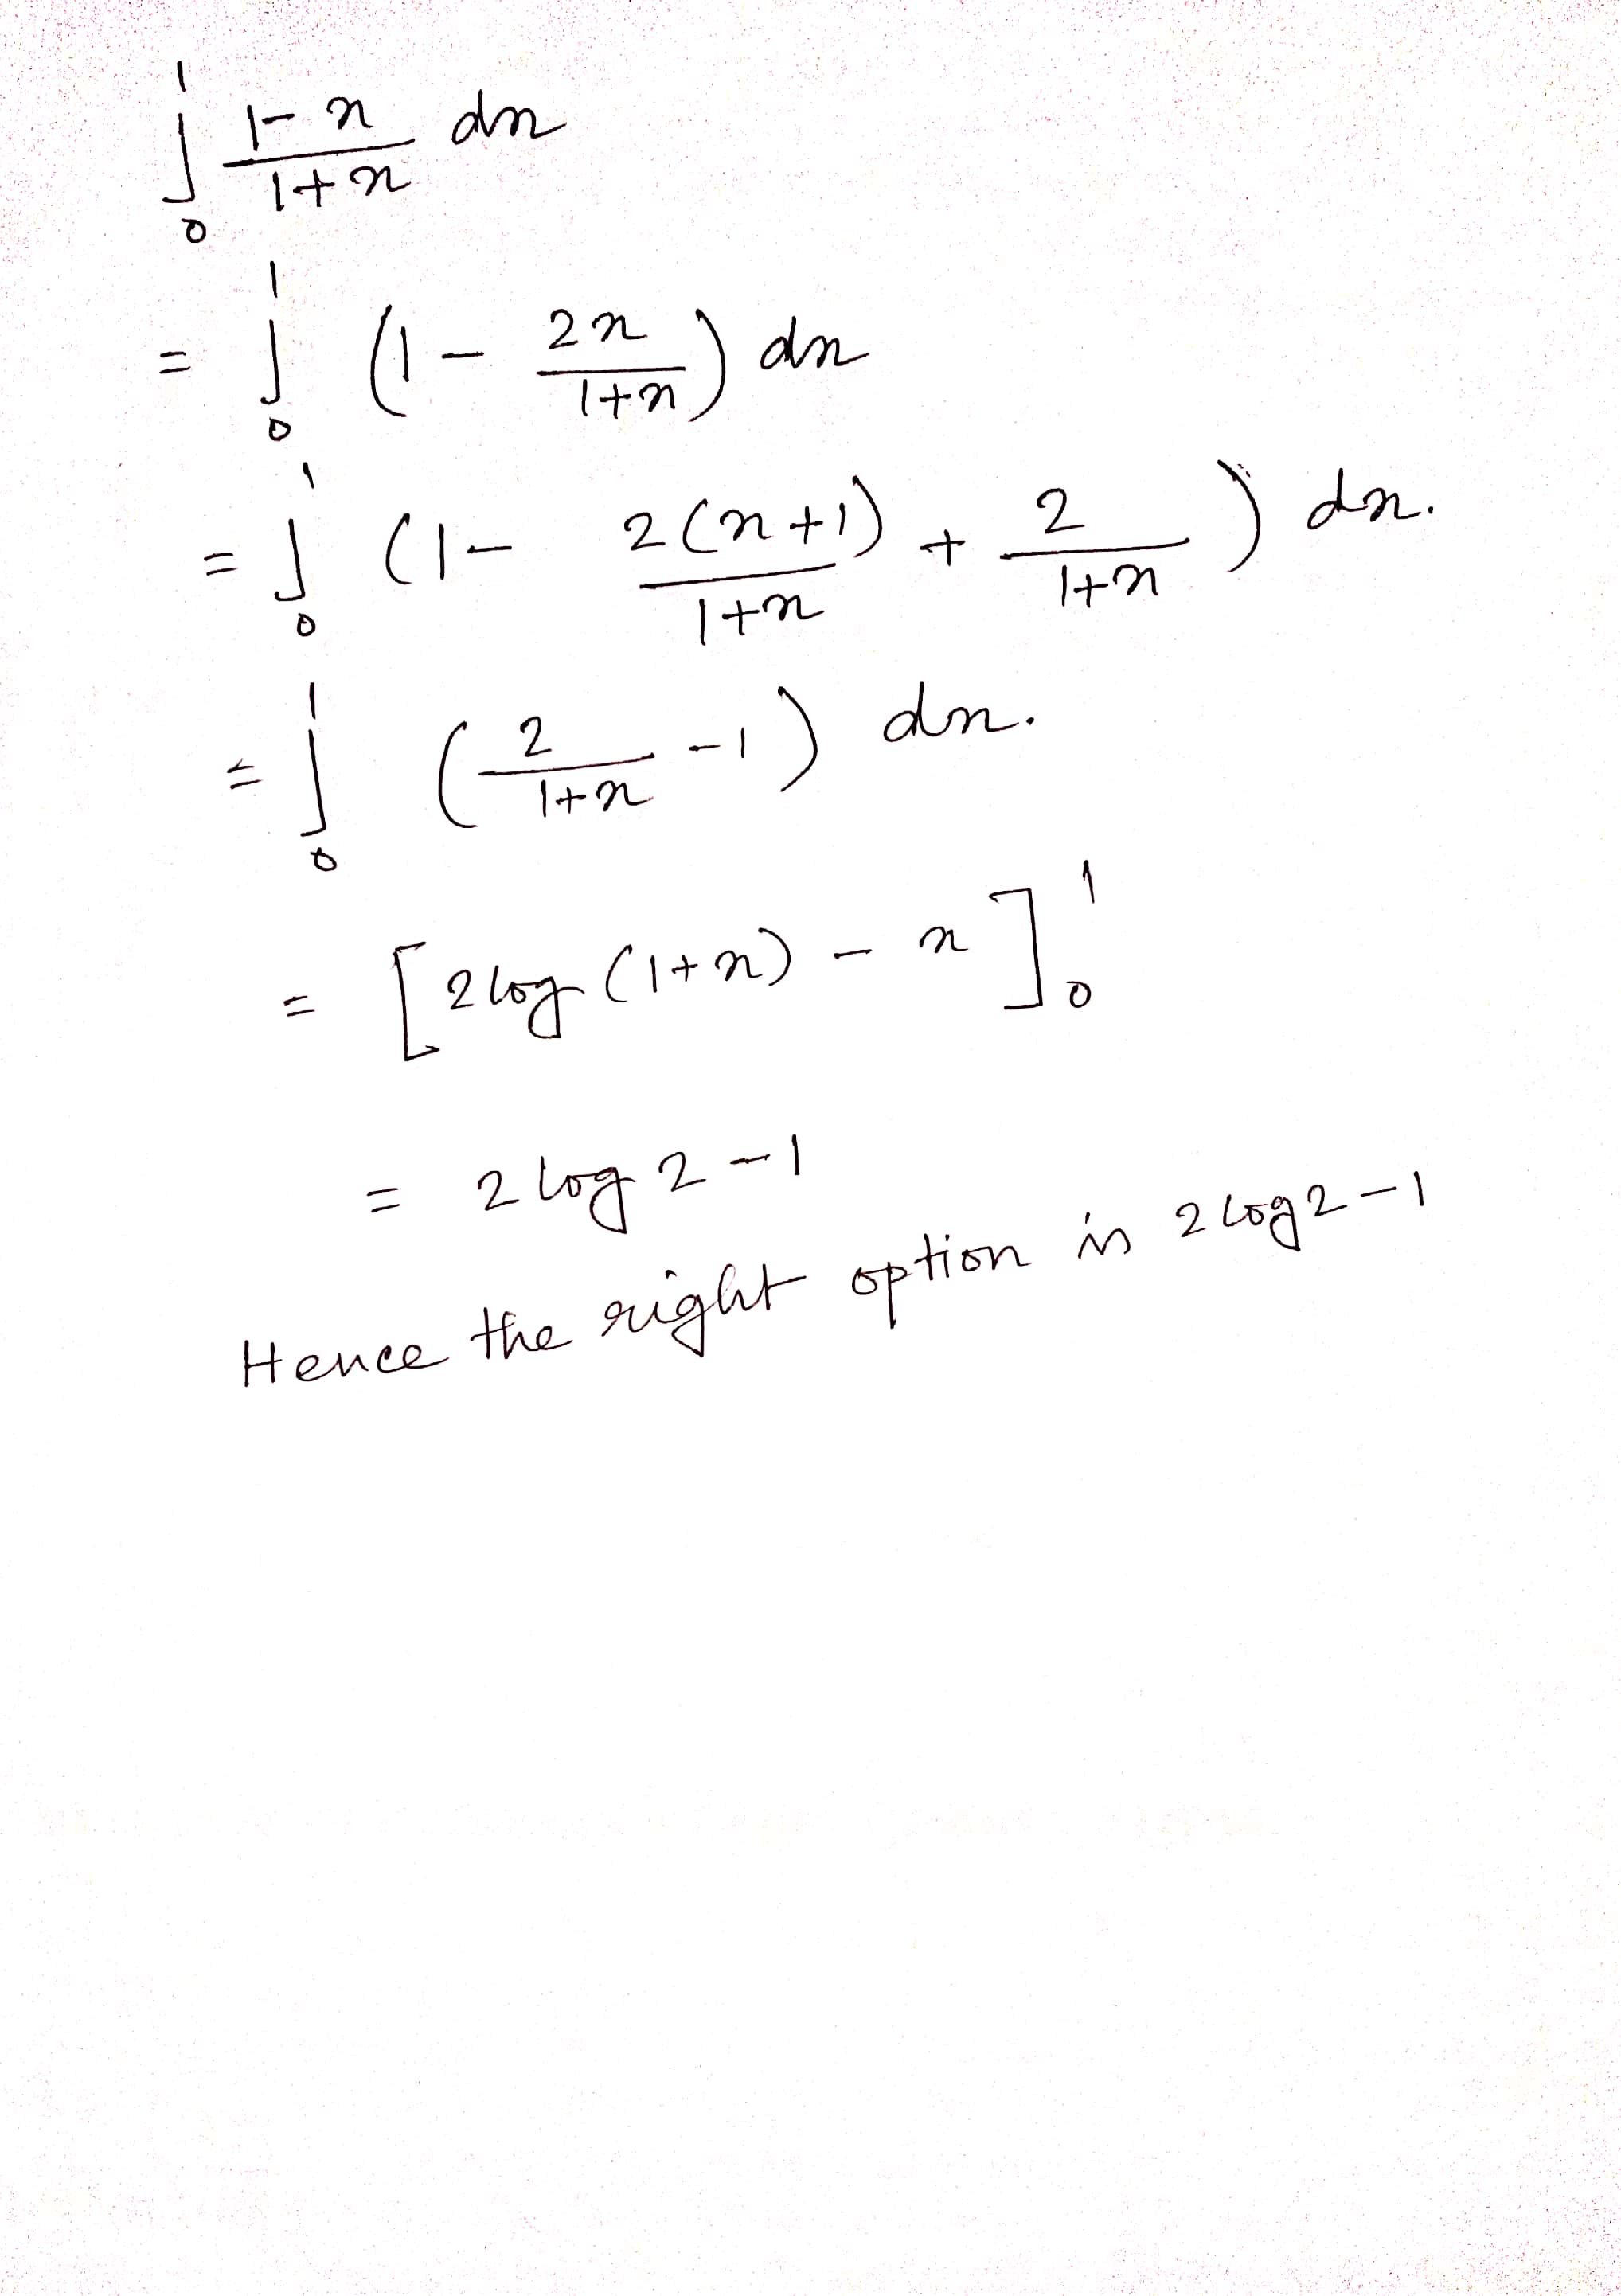 ∫₀¹ (1-x)/(1+x) dx
= ∫₀¹ (1 - 2x/(1+x)) dx
= ∫₀¹ (1 - 2(x+1)/(1+x) + 2/(1+x)) dx.
= ∫₀¹ (2/(1+x) - 1) dx.
= [2log(1+x) - x]₀¹
= 2 log 2 - 1
Hence the right option is 2 log 2 - 1